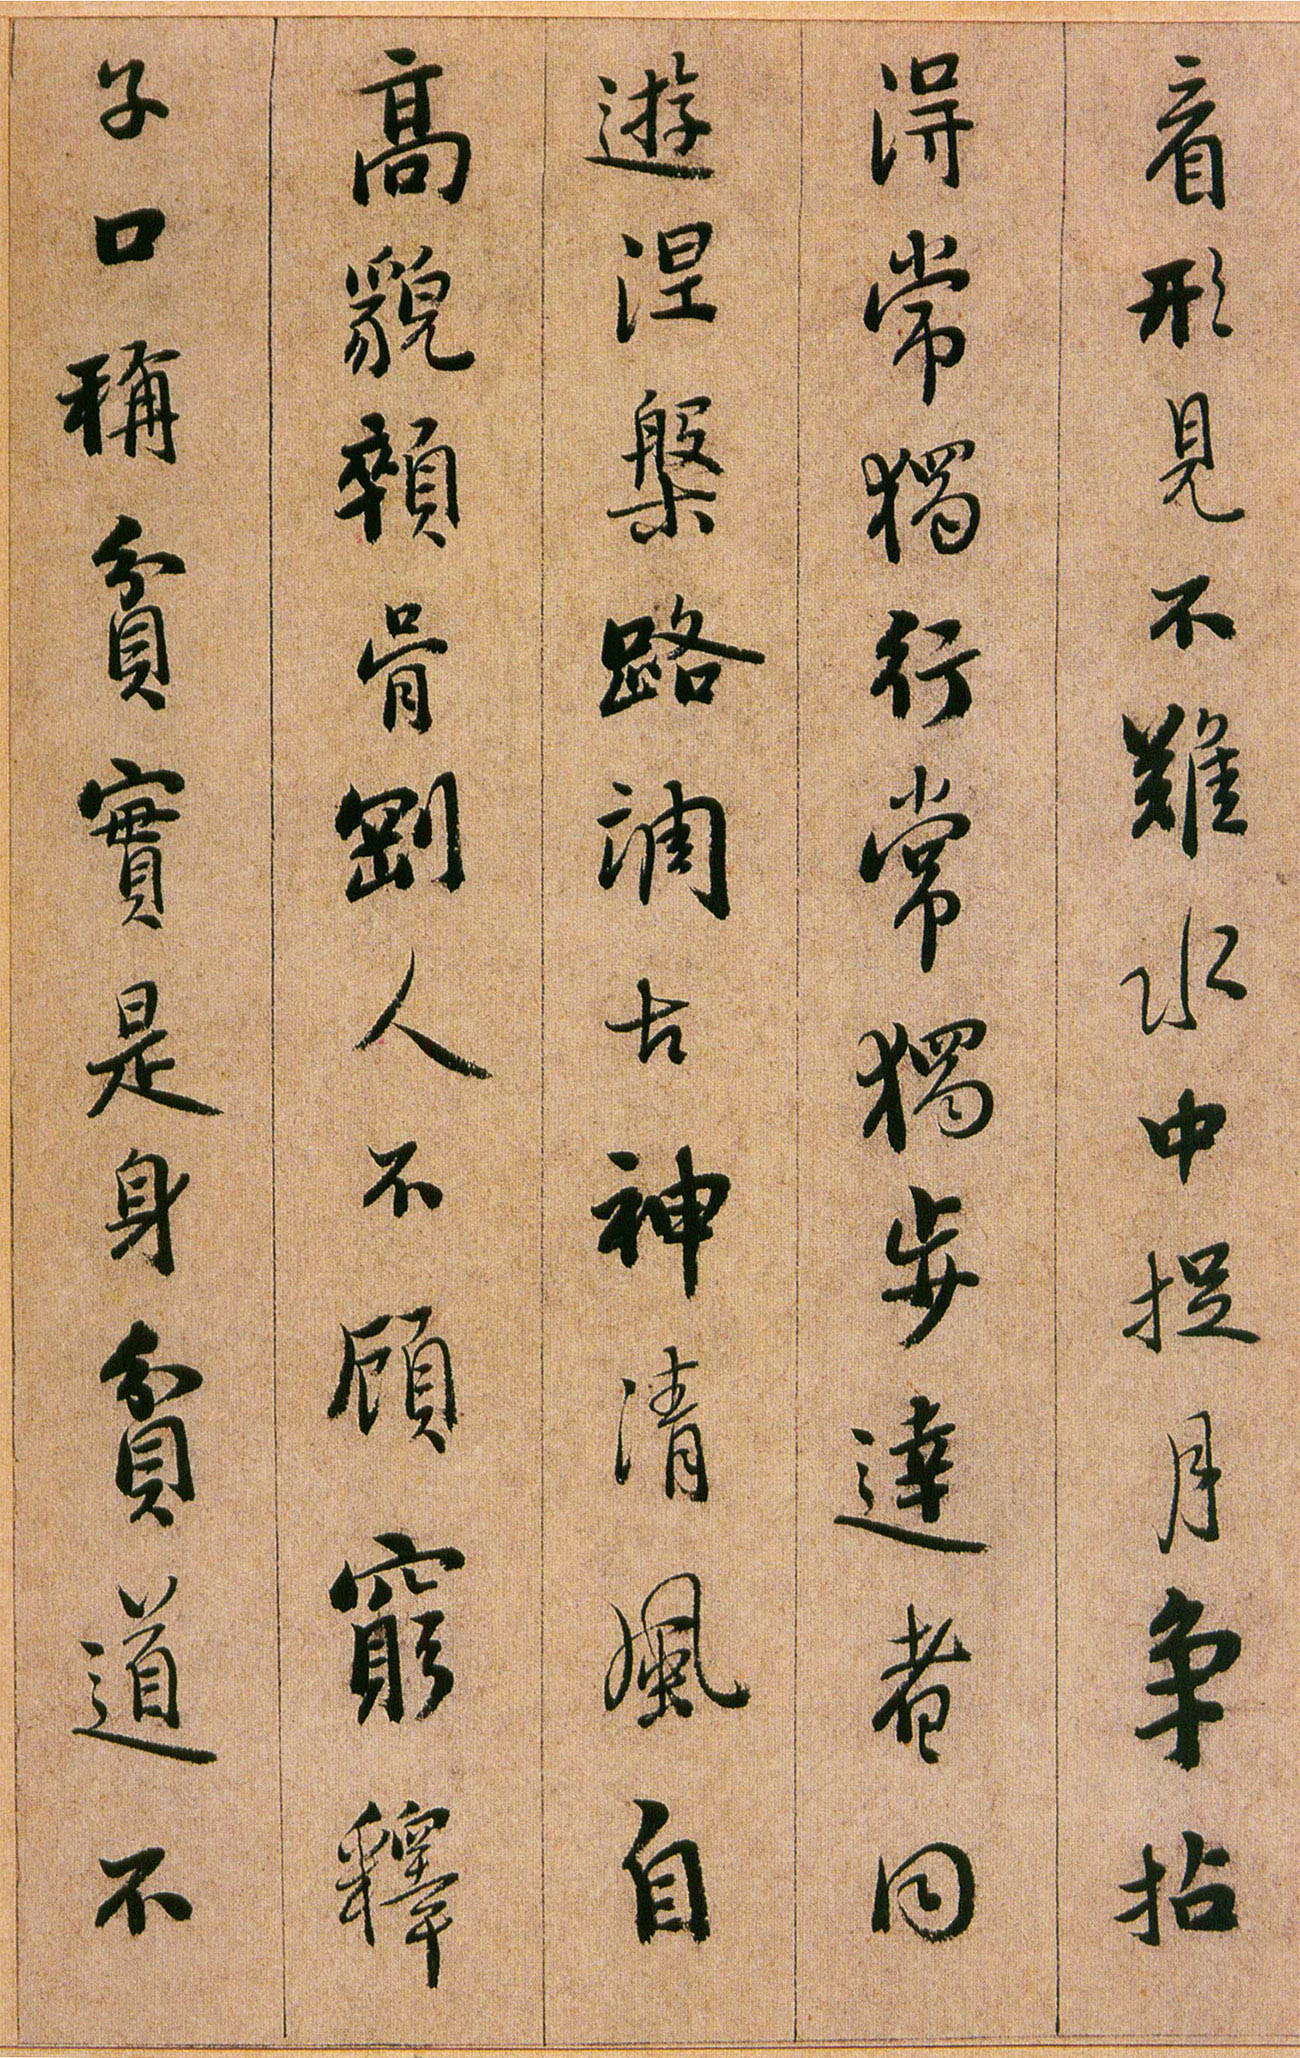 看形見不難水中捉月爭拈
得常獨行常獨步達者同
遊涅槃路調古神清風自
高貌顇骨剛人不顧窮釋
子口稱貧實是身貧道不